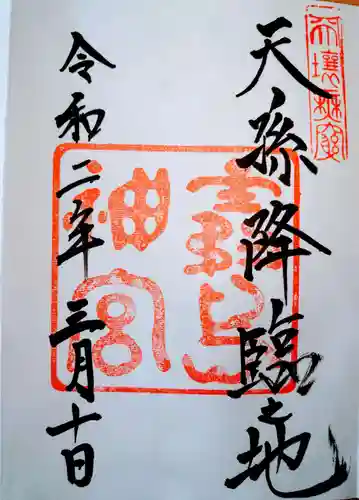 天壌無窮
天孫降臨之地
青島
神宮
令和二年三月十日